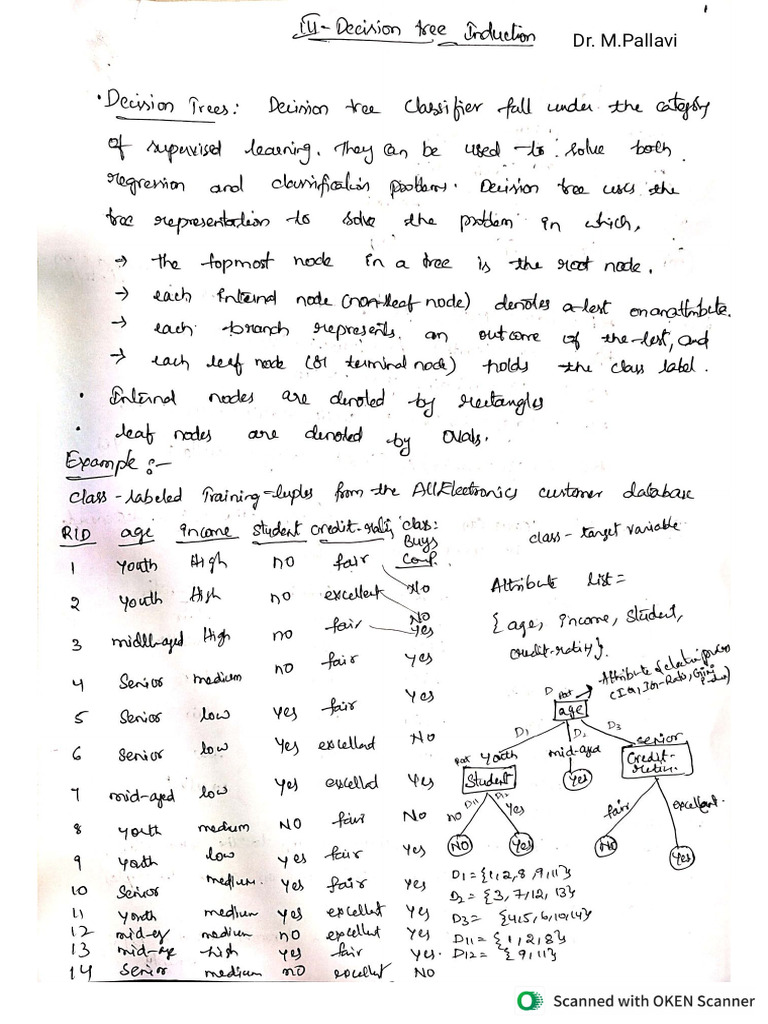 1
III - Decision tree Induction
Dr. M.Pallavi
• Decision Trees: Decision tree classifier fall under the category
of supervised learning. They can be used to solve both
regression and classification problems. Decision tree uses the
tree representation to solve the problem in which,
→ the topmost node in a tree is the root node.
→ each internal node (non-leaf node) denotes a test on an attribute.
→ each branch represents an outcome of the test, and
→ each leaf node (or terminal node) holds the class label.
• Internal nodes are denoted by rectangles
• leaf nodes are denoted by ovals.
Example :-
class-labeled Training-tuples from the AllElectronics customer database
RID age income student credit-rating class: Buys Comp.
1 youth High no fair No
2 youth High no excellent No
3 middl-aged High no fair Yes
4 Senior medium no fair Yes
5 Senior low yes fair Yes
6 Senior low Yes excellent No
7 mid-aged low Yes excellent Yes
8 youth medium NO fair No
9 youth low yes fair Yes
10 Senior medium. Yes fair Yes
11 youth medium yes excellent Yes
12 mid-ag medium no excellent Yes
13 mid-age high yes fair Yes.
14 Senior medium no excellent NO
class - target variable
Attribute list =
{age, income, student,
credit-rating}.
Attribute selection
D
age
D1 D2 D3
youth mid-aged senior
Student Yes Credit-
D11 D12
no Yes fair excellent
NO Yes No Yes
D1 = {1, 2, 8, 9, 11}
D2 = {3, 7, 12, 13}
D3 = {4, 5, 6, 10, 14}
D11 = {1, 2, 8}
D12 = {9, 11}
Scanned with OKEN Scanner